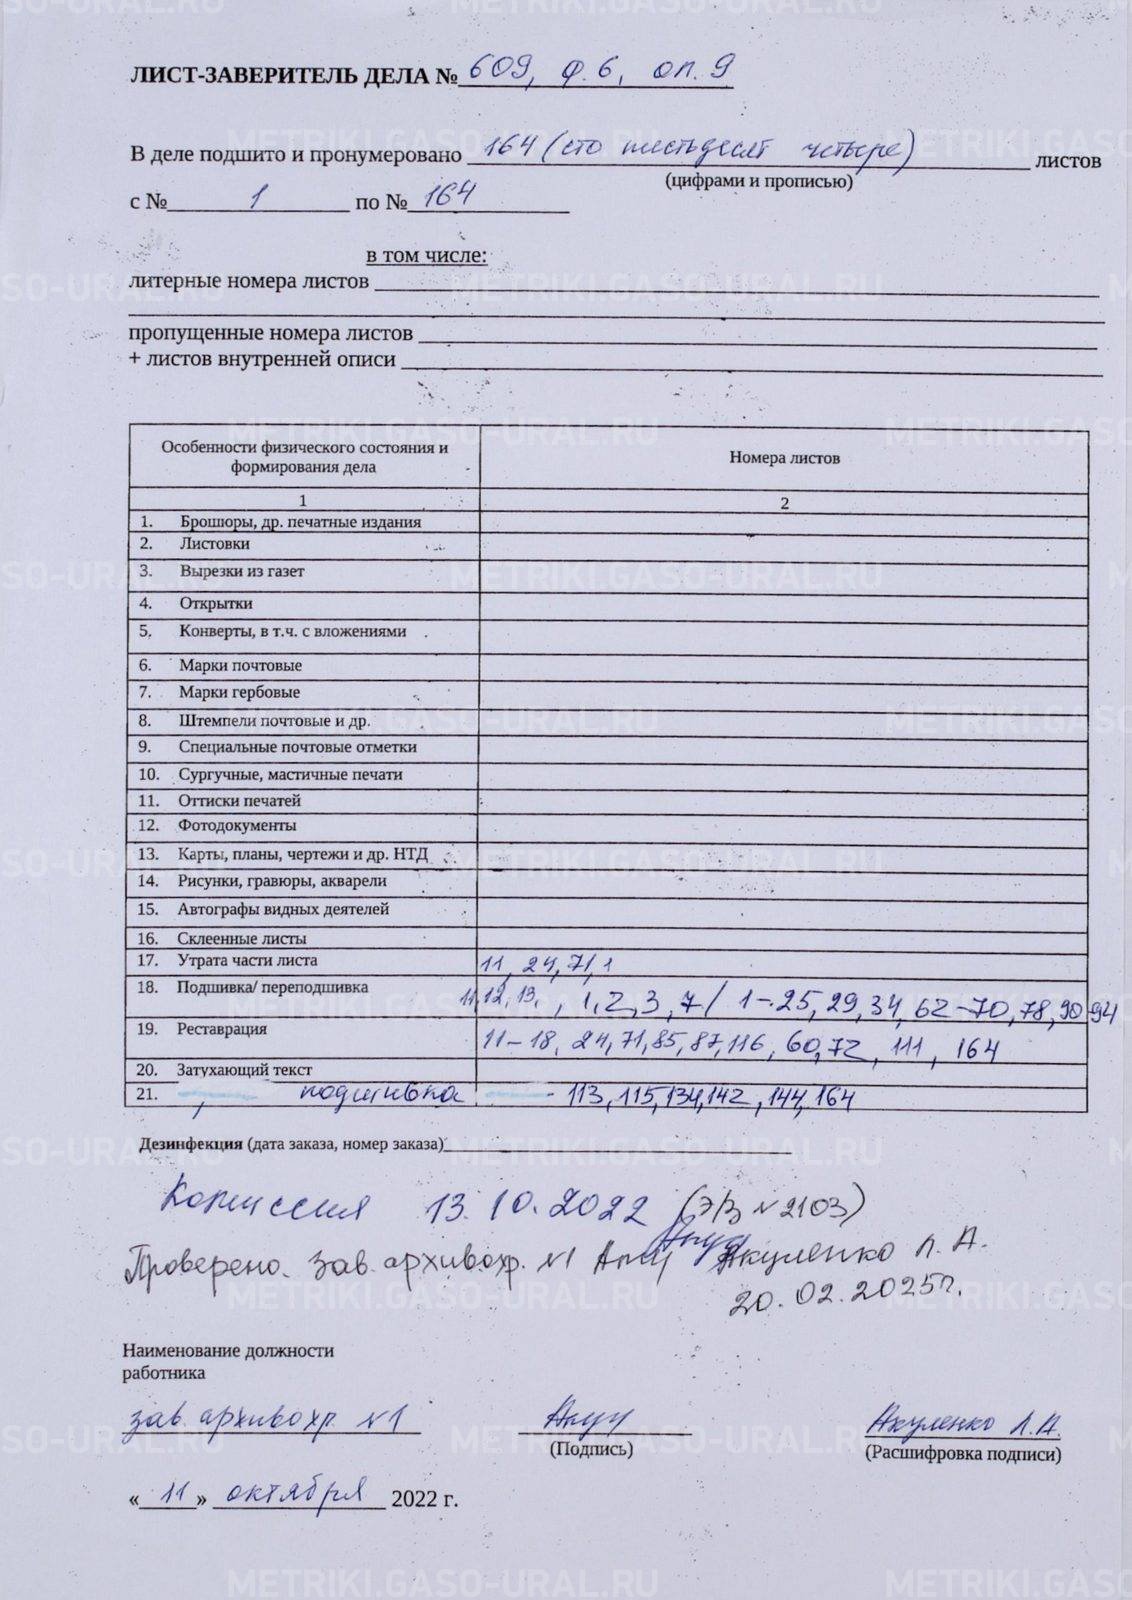 ЛИСТ-ЗАВЕРИТЕЛЬ ДЕЛА № 609, ф. 6, оп. 9
В деле подшито и пронумеровано 164 (сто шестьдесят четыре) листов
(цифрами и прописью)
с № 1 по № 164
в том числе:
литерные номера листов
пропущенные номера листов
+ листов внутренней описи
Особенности физического состояния и
формирования дела
Номера листов
1 2
1. Брошюры, др. печатные издания
2. Листовки
3. Вырезки из газет
4. Открытки
5. Конверты, в т.ч. с вложениями
6. Марки почтовые
7. Марки гербовые
8. Штемпели почтовые и др.
9. Специальные почтовые отметки
10. Сургучные, мастичные печати
11. Оттиски печатей
12. Фотодокументы
13. Карты, планы, чертежи и др. НТД
14. Рисунки, гравюры, акварели
15. Автографы видных деятелей
16. Склеенные листы
17. Утрата части листа 11, 24, 71
18. Подшивка/ переподшивка 11, 12, 13, 1, 2, 3, 7 / 1-25, 29, 34, 62-70, 78, 90-94
19. Реставрация 11-18, 24, 71, 85, 87, 116, 60, 72, 111, 164
20. Затухающий текст
21. подшивка - 113, 115, 134, 142, 144, 164
Дезинфекция (дата заказа, номер заказа)
Комиссия 13.10.2022 (Э/З №2103)
Проверено. Зав. архивохр. №1 Акуленко Л. А.
20.02.2025г.
Наименование должности
работника
зав. архивохр. №1 Акуленко Л.А.
(Подпись) (Расшифровка подписи)
« 11 » октября 2022 г.
METRIKI.GASO-URAL.RU